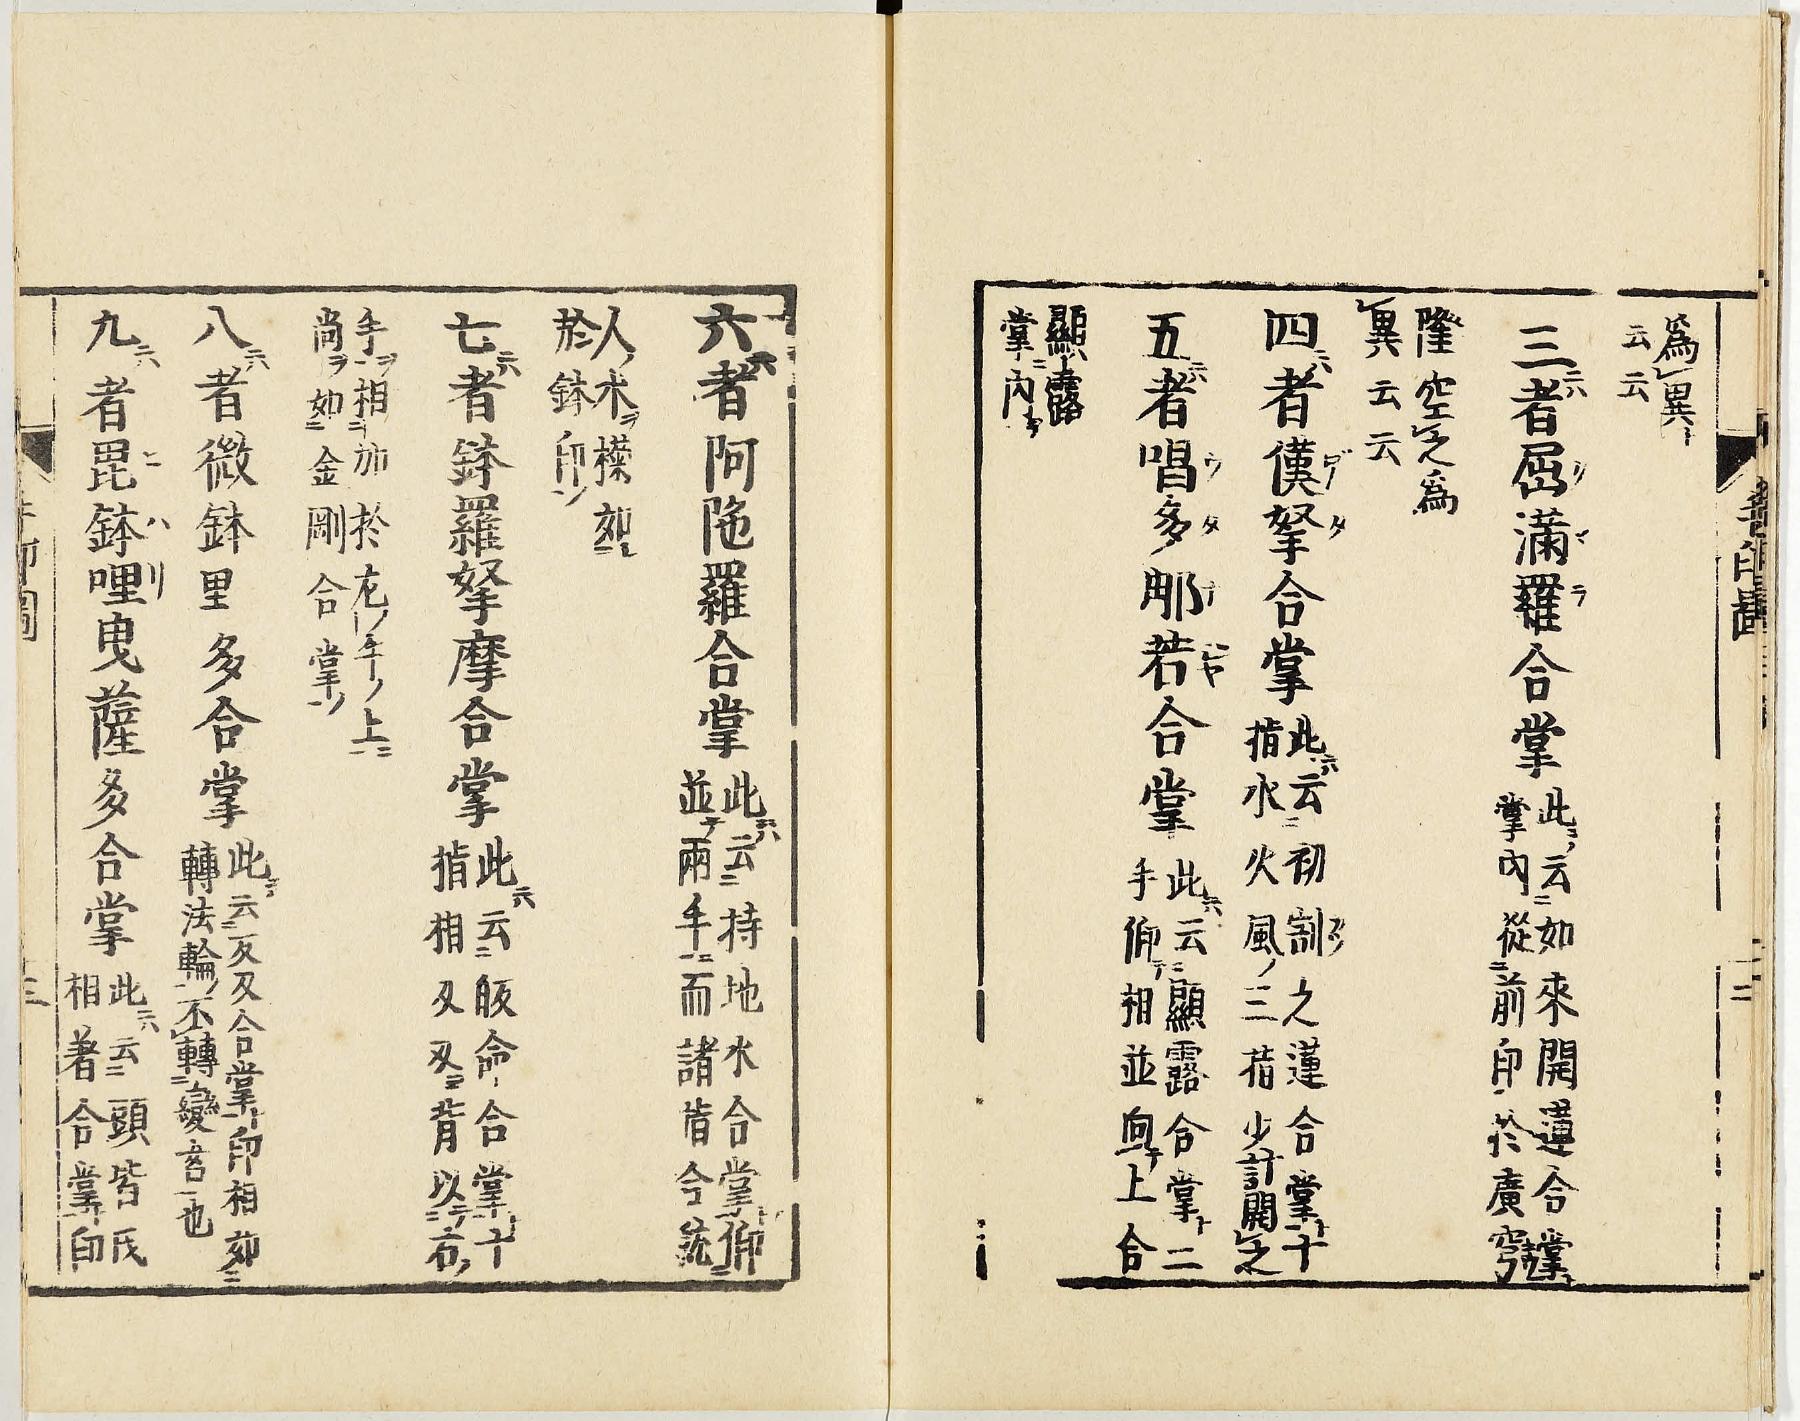 爲異
云云
三者屈滿羅合掌
此云如來開蓮合掌
掌內從前印於廣窄
隆空之爲
異云云
四者僕拏合掌
此云初割之蓮合掌十
指水火風三指少計開之
五者唱多那若合掌
此云顯露合掌二
手仰相並向上合
顯露
掌內
六者阿陁羅合掌
此云持地水合掌仰
並兩手而諸指合
人水
於鉢印
七者鉢羅拏摩合掌
此云皈命合掌十
指相叉叉背以右
手相加於左手上
尚如金剛合掌
八者微鉢里多合掌
此云反叉合掌印相
轉法輪不轉變言也
九者毘鉢哩曳薩多合掌
此云頭皆
相著合掌印
印圖
二
三